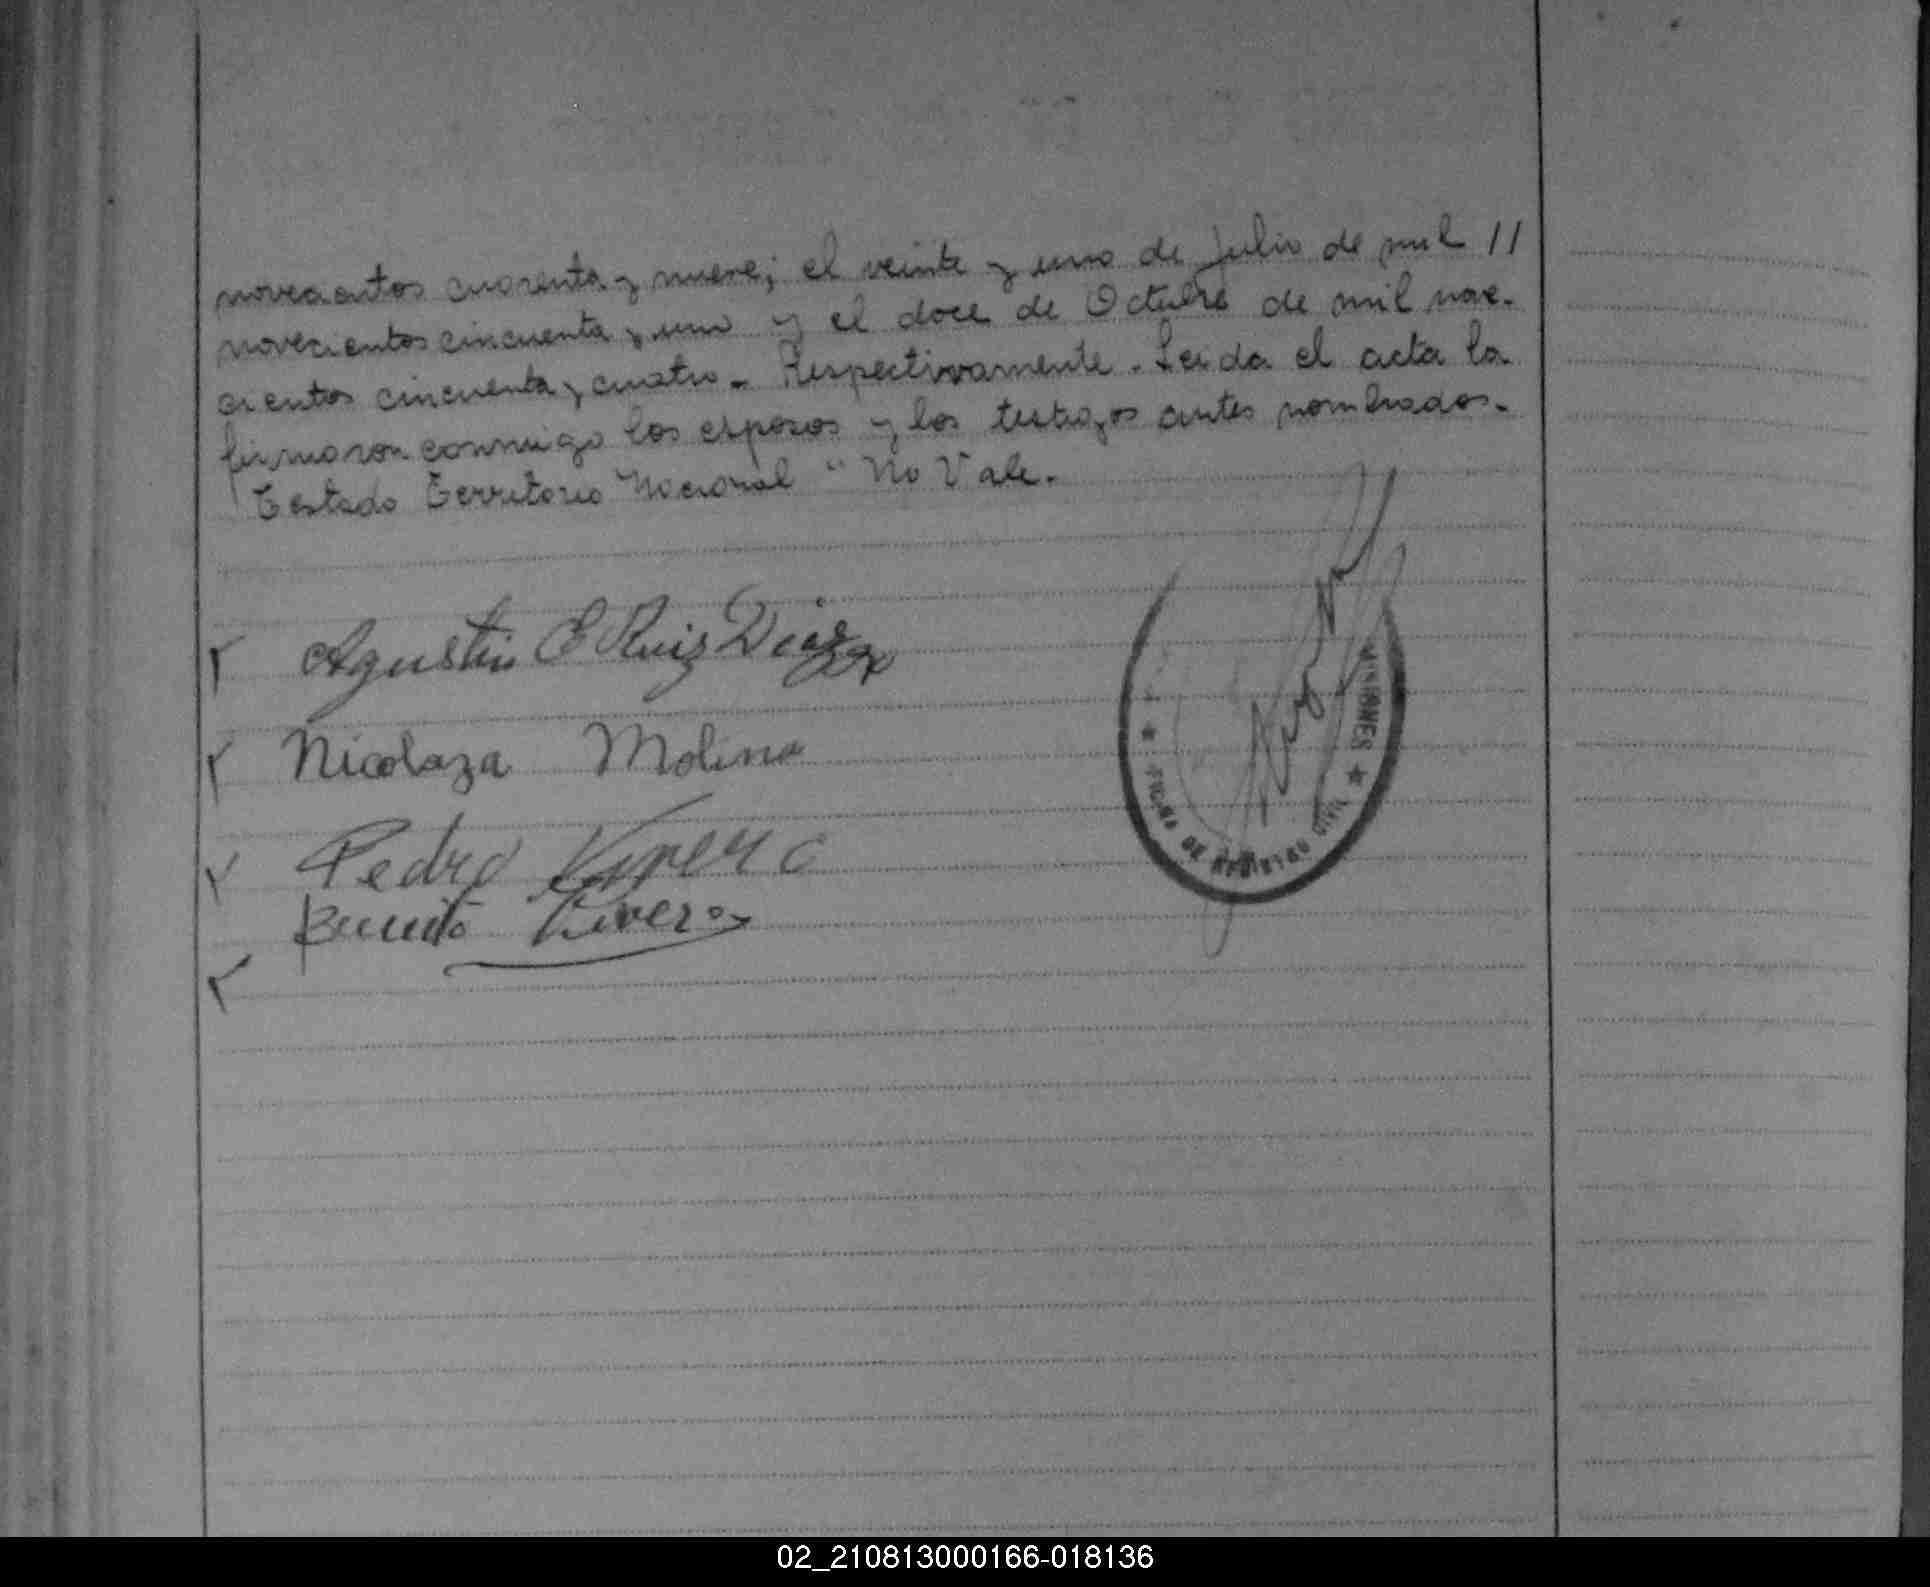 novecientos cuarenta y nueve; el veinte y uno de Julio de mil //
novecientos cincuenta y uno y el doce de Octubre de mil nove-
cientos cincuenta y cuatro. Respectivamente. Leida el acta la
firmaron conmigo los esposos y los testigos antes nombrados.
Testado Territorio Nacional " No Vale.
Agustin E Ruiz Diaz
Nicolaza Molina
Pedro
Benito Rivero
MISIONES ★
★ FICINA DE REGISTRO CIVIL
02_210813000166-018136